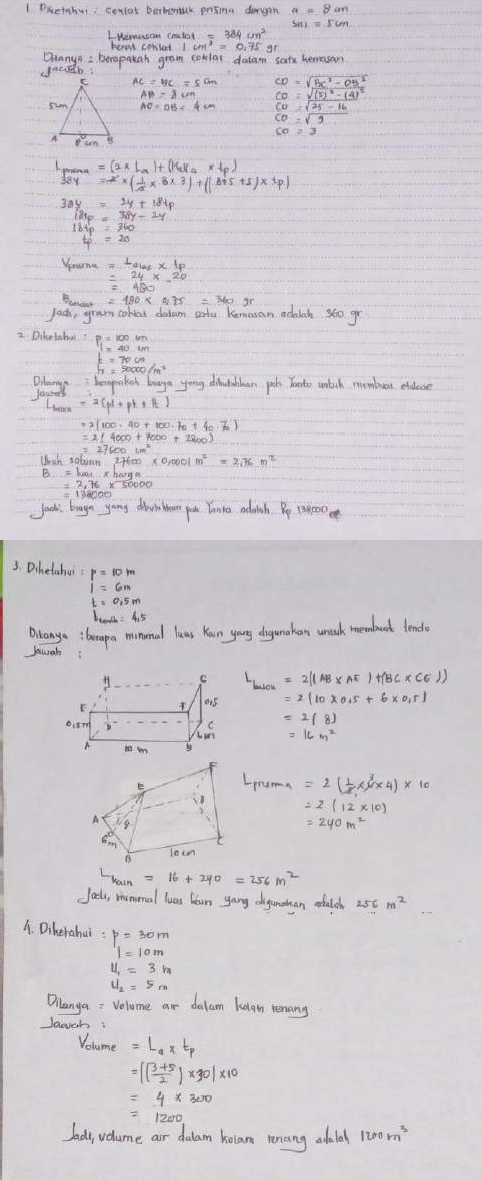 1. Diketahui : coklat berbentuk prisma dengan a = 8 cm
sisi = 5 cm
L kemasan coklat = 384 cm²
berat coklat 1 cm³ = 0,75 gr
Ditanya : berapakah gram coklat dalam satu kemasan
Jawab :
C
5cm
A 8 cm B
AC = BC = 5 cm
AB = 8 cm
AO = OB = 4 cm
CO = √BC² - OB²
CO = √(5)² - (4)²
CO = √25 - 16
CO = √9
CO = 3
Lprisma = (2 x La) + (Kell a x tp)
384 = 2 x (1/2 x 8 x 3) + ((8+5+5) x tp)
384 = 24 + 18tp
18tp = 384 - 24
18tp = 360
tp = 20
Vprisma = Lalas x tp
= 24 x 20
= 480
Bcoklat = 480 x 0,75 = 360 gr
Jadi, gram coklat dalam satu kemasan adalah 360 gr
2. Diketahui : p = 100 cm
l = 40 cm
t = 70 cm
h = 50000/m²
Ditanya : berapakah biaya yang dibutuhkan pak Tanto untuk membuat etalase
Jawab :
L = 2(pl + pt + lt)
= 2(100 . 40 + 100 . 70 + 40 . 70)
= 2(4000 + 7000 + 2800)
= 27600 cm²
Ubah satuan 27600 x 0,0001 m² = 2,76 m²
B = luas x harga
= 2,76 x 50000
= 138000
Jadi, biaya yang dibutuhkan pak Tanto adalah Rp 138000
3. Diketahui : p = 10 m
l = 6m
t = 0,5 m
= 4,5
Ditanya : berapa minimal luas kain yang digunakan untuk membuat tenda
Jawab :
H G
E F 0,5
0,5m D C
6m
A 10 m B
Lbalok = 2((AB x AE) + (BC x CG))
= 2(10 x 0,5 + 6 x 0,5)
= 2(8)
= 16 m²
F
E
A 4 D
6m
B 10 cm C
Lprisma = 2(1/2 x 6 x 4) x 10
= 2(12 x 10)
= 240 m²
Lkain = 16 + 240 = 256 m²
Jadi, minimal luas kain yang digunakan adalah 256 m²
4. Diketahui : p = 30 m
l = 10 m
= 3 m
= 5 m
Ditanya = Volume air dalam kolam renang
Jawab :
Volume = La x tp
= ((3+5/2) x 30) x 10
= 4 x 300
= 1200
Jadi, volume air dalam kolam renang adalah 1200 m³